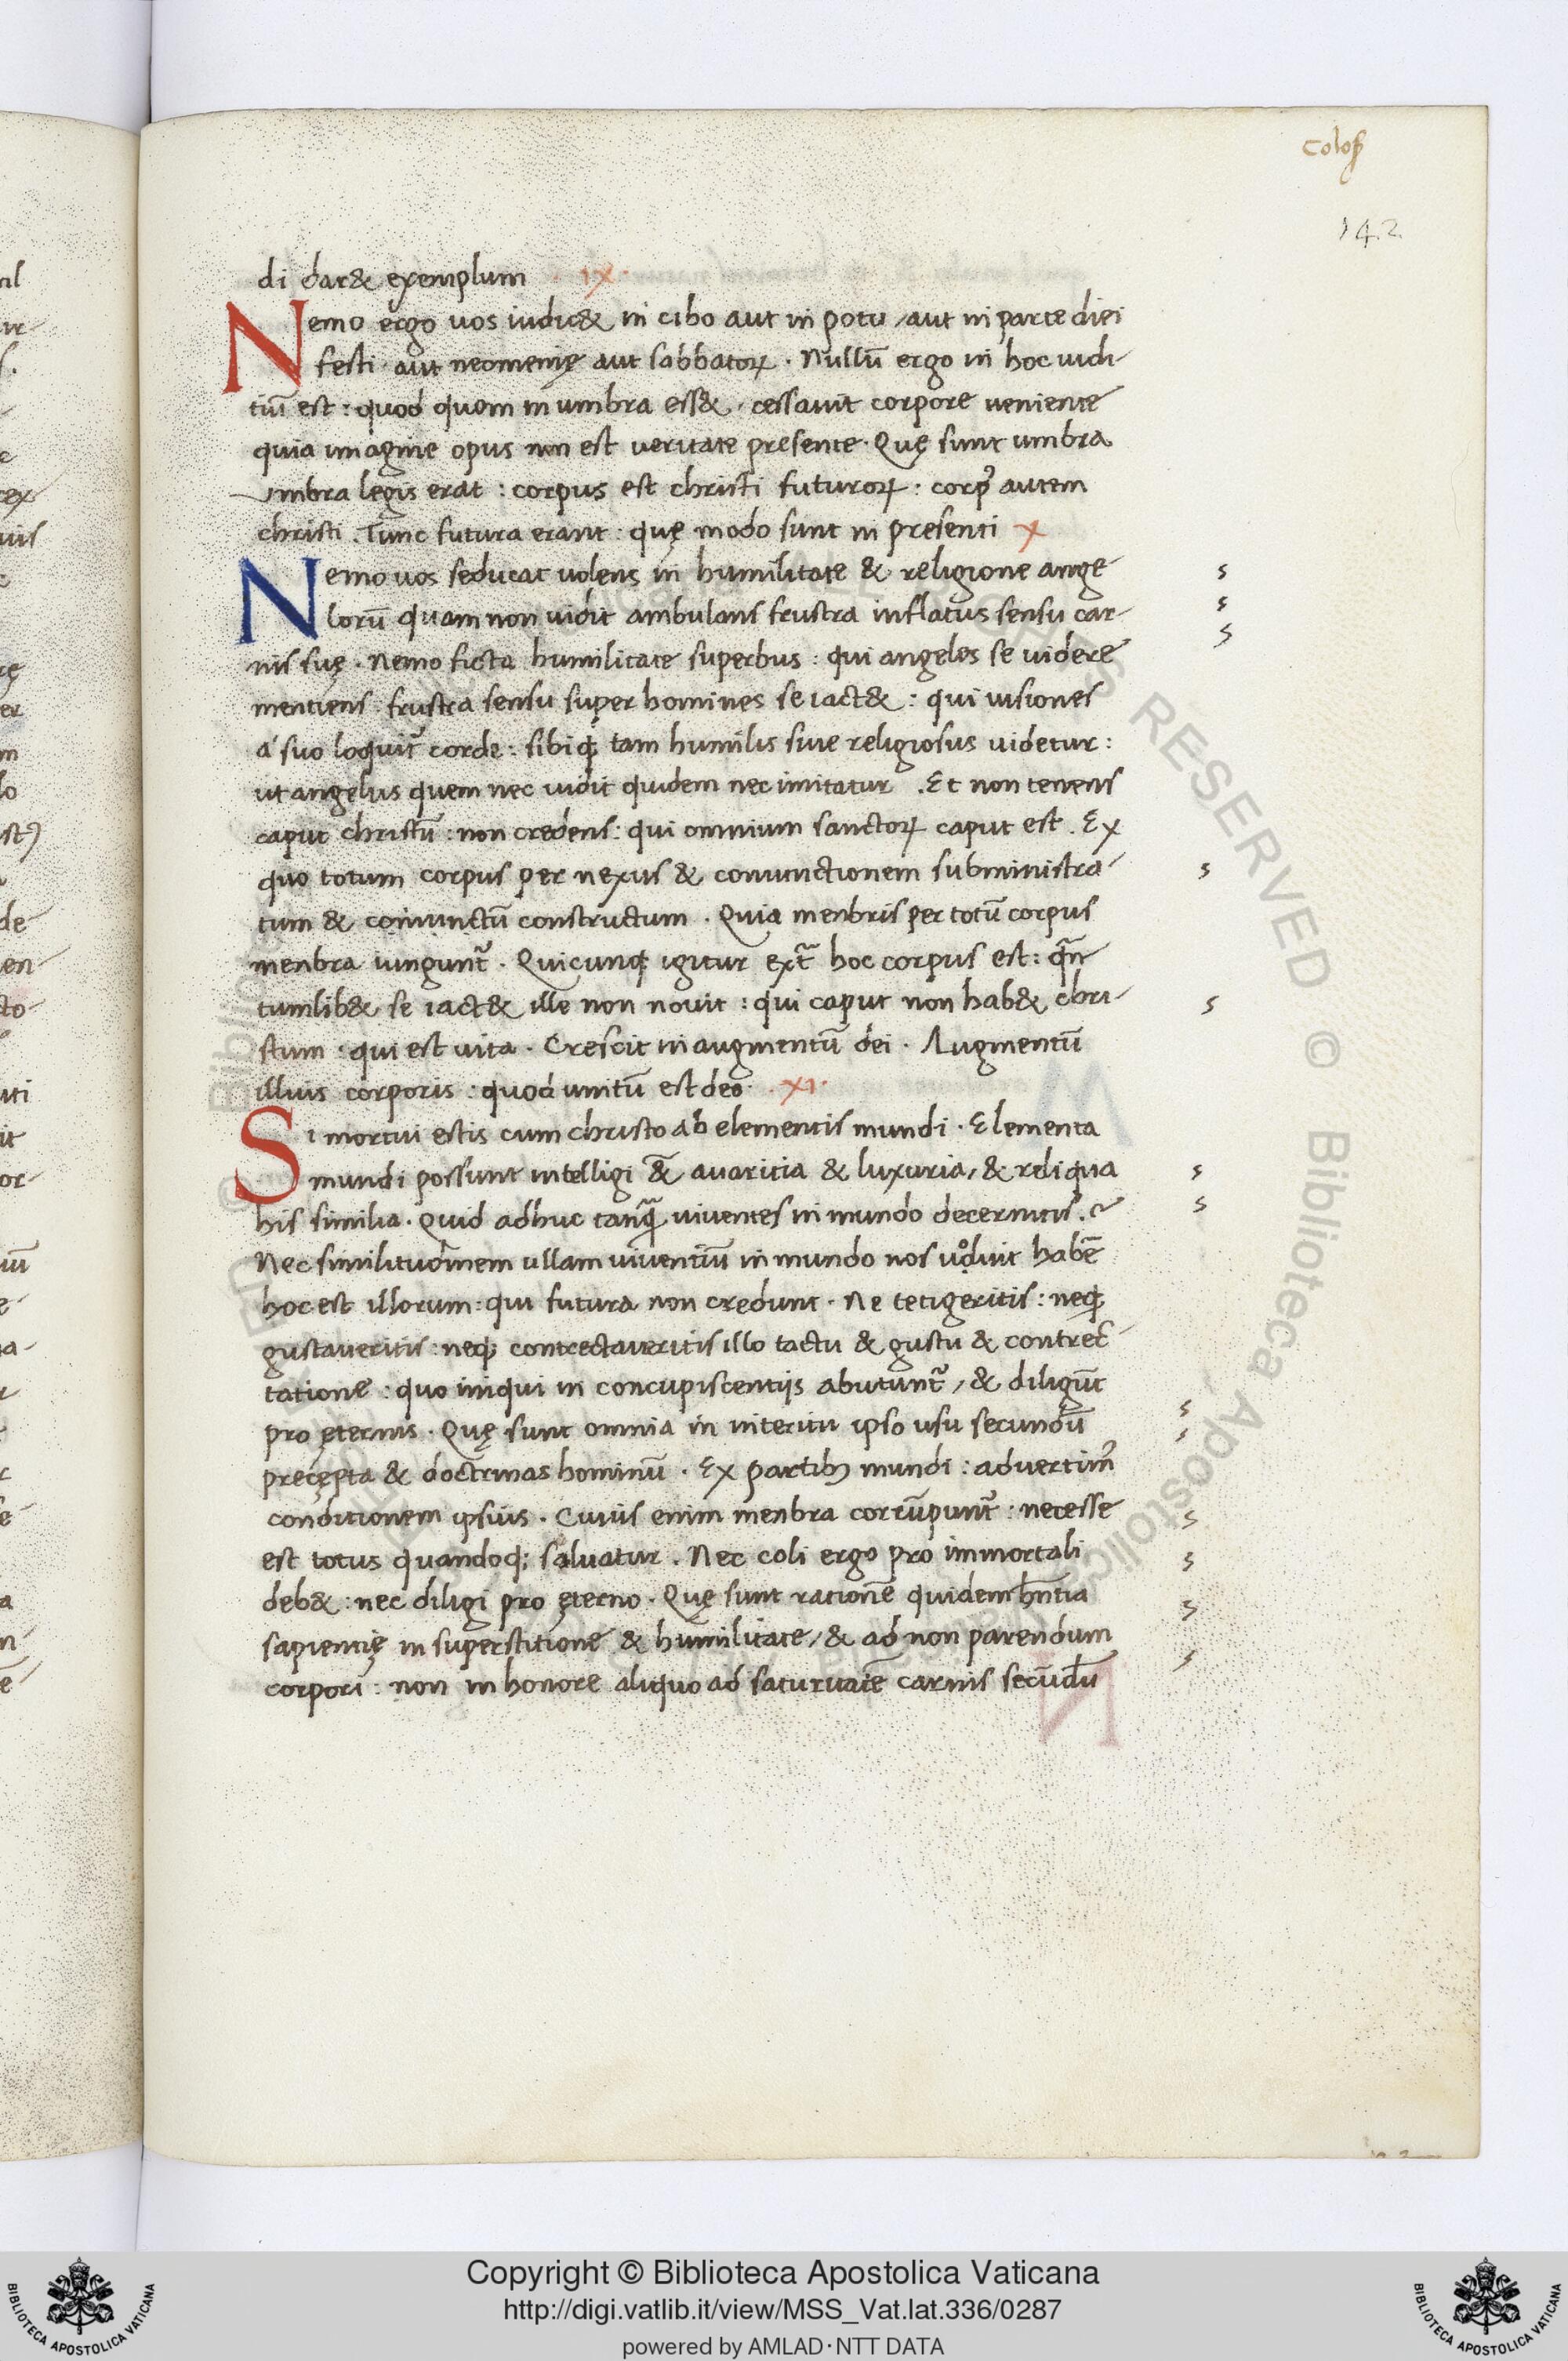 Colos̄
142
di dar& exemplum · IX ·
Nemo ergo vos iudic& in cibo aut in potu / aut in parte diei
festi · aut neomenię aut sabbatoꝝ · Nullū ergo in hoc uidi-
tiū est : quod quom in umbra ess& · cessavit corpore veniente
quia imagine opus non est veritate presente · Quę sunt umbra
umbra legis erat : corpus est christi futuroꝝ : corpꝰ autem
christi . Tunc futura erant : quę modo sunt in presenti X
Nemo uos seducat uolens in humilitate & religione ange-
lorū quam non uidit ambulans frustra inflatus sensu car-
nis suę · Nemo ficta humilitate superbus : qui angelos se videre
mentiens frustra sensu super homines se iact& : qui visiones
a suo loquit᷑ corde : sibiqꝫ tam humilis sive religiosus videtur :
ut angelus quem nec uidit quidem nec imitatur . Et non tenens
caput christū : non credens : qui omnium sanctoꝝ caput est . Ex
quo totum corpus per nexus & coniunctionem subministra-
tum & coniunctū constructum · Quia menbris per totū corpus
menbra iungunt᷑ · Quicunqꝫ igitur ext᷑ hoc corpus est : qn̄-
tumlib& se iact& ille non novit : qui caput non hab& chri-
stum : qui est vita · Crescit in augmentū dei · Augmentū
illius corporis : quod unitū est deo · XI ·
Si mortui estis cum christo ab elementis mundi · Elementa
mundi possunt intelligi &̄ avaritia & luxuria / & reliqua
his similia · Quid adhuc tanqȝ viventes in mundo decernitis . ?
Nec similitudinem ullam viventiū in mundo nos voluit habē
hoc est illorum : qui futura non credunt · Ne tetigeritis : neqꝫ
gustaveritis : neqꝫ contrectaveritis illo tactu & gustu & contrec-
tatione : quo iniqui in concupiscentijs abutunt᷑ / & diligūt
pro ęternis · Quę sunt omnia in interitu ipso usu secundū
precępta & doctrinas hominū · Ex partibꝫ mundi : advertimꝰ
conditionem ipsius · Cuius enim menbra corrūpunt᷑ : necesse
est totus quandoqꝫ salvatur . Nec coli ergo pro immortali
deb& : nec diligi pro ęterno · Quę sunt rationē quidem hn̄tia
sapientię in superstitione & humilitate / & ad non parendum
corpori : non in honore aliquo ad saturitatē carnis secūdū
Copyright © Biblioteca Apostolica Vaticana
http://digi.vatlib.it/view/MSS_Vat.lat.336/0287
powered by AMLAD·NTT DATA